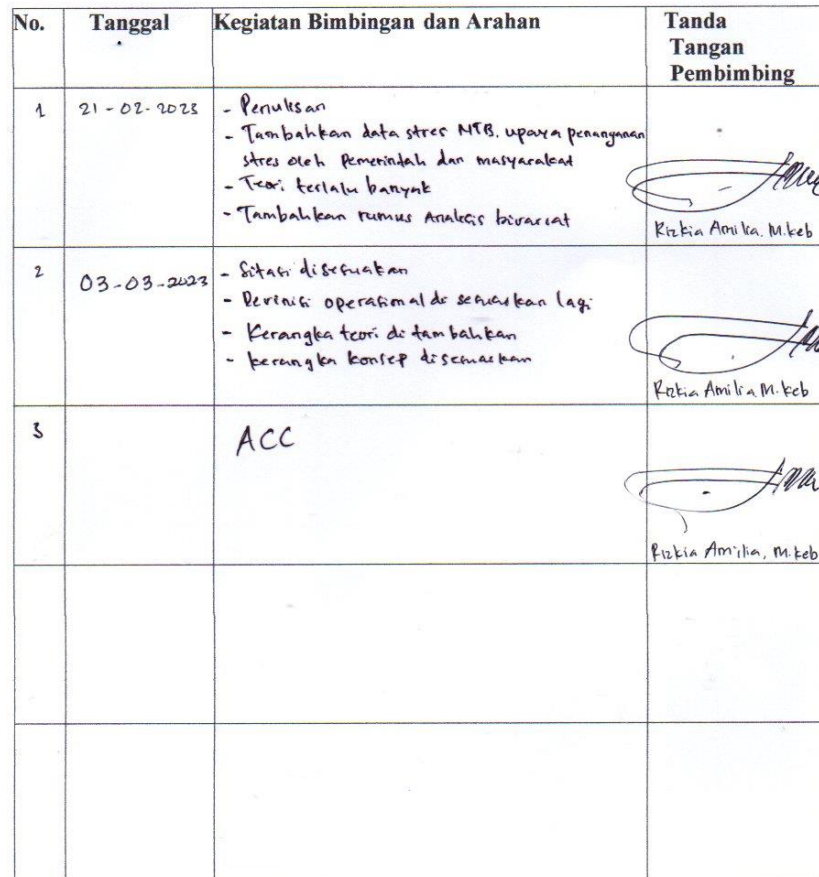 No. Tanggal Kegiatan Bimbingan dan Arahan Tanda
Tangan
Pembimbing
1 21-02-2023 - Penulisan
- Tambahkan data stres NTB, upaya penanganan
stres oleh Pemerintah dan masyarakat
- Teori terlalu banyak
- Tambahkan rumus Analisis bivariat
Rizkia Amilia, M.keb
2 03-03-2023 - Sitasi disesuaikan
- Devinisi operasional di sesuaikan lagi
- Kerangka teori di tambahkan
- kerangka konsep disesuaikan
Rizkia Amilia M.keb
3 ACC
Rizkia Amilia, M.keb